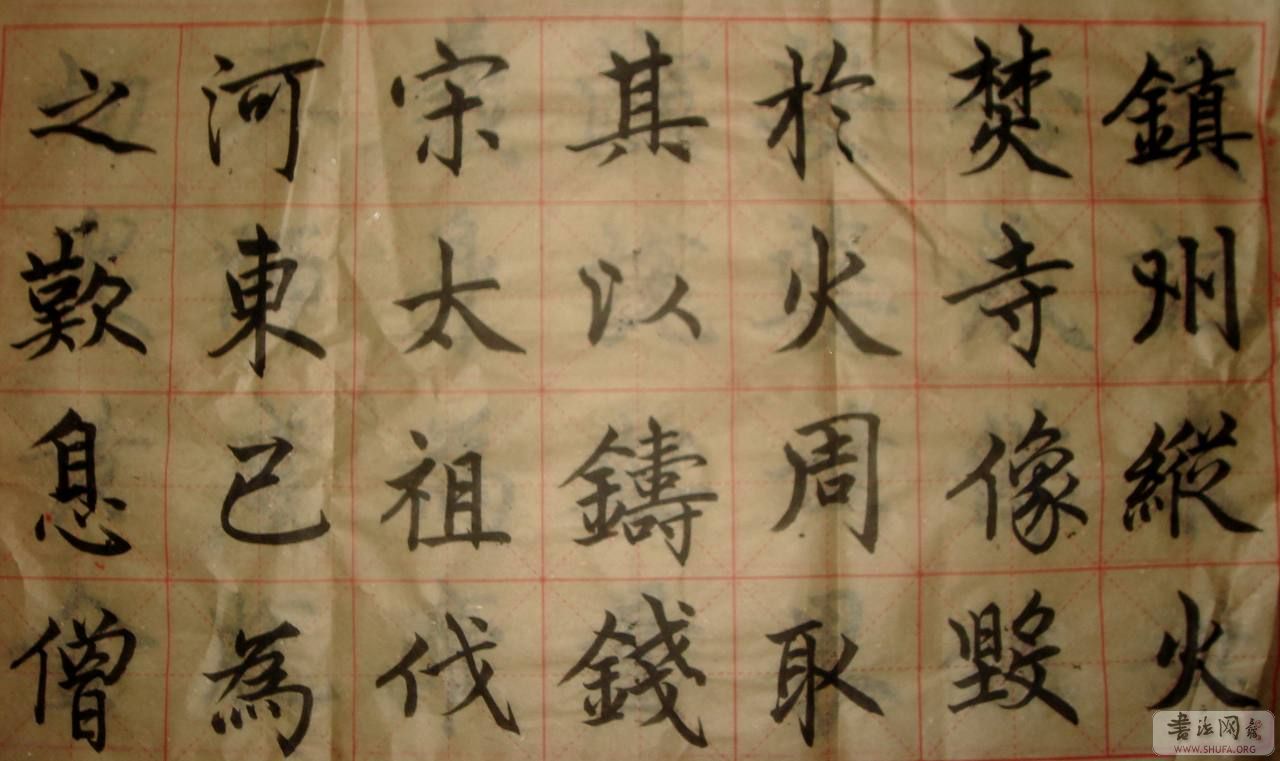 鎮州縱火
焚寺像毀
於火周取
其以鑄錢
宋太祖伐
河東已為
之歎息僧
书法网
WWW.SHUFA.ORG